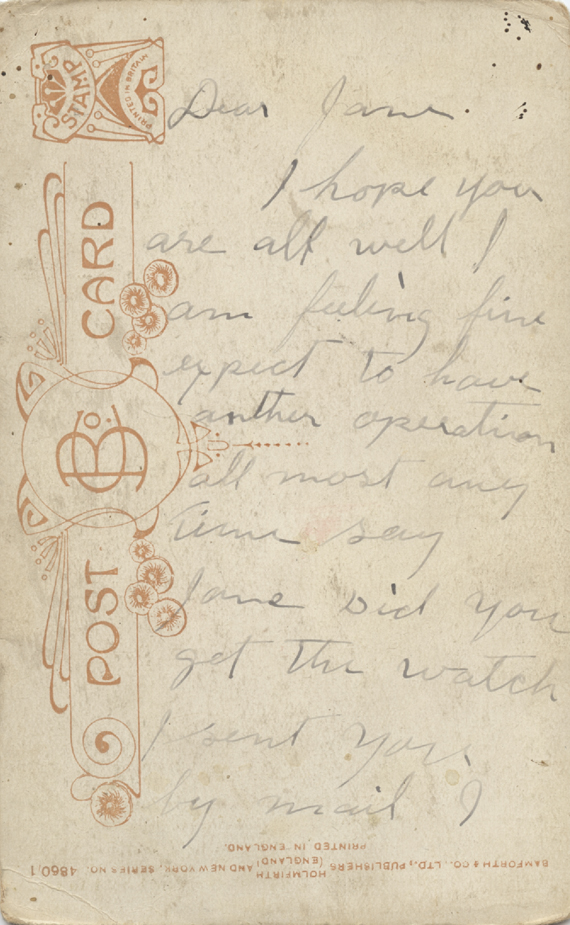 STAMP
PRINTED IN BRITAIN
POST CARD
B Co.
Dear Jane
I hope you
are all well I
am feeling fine
expect to have
anther operation
all most any
time say
Jane Did you
get the watch
I sent you
by mail I
BAMFORTH & CO., LTD., PUBLISHERS
HOLMFIRTH (ENGLAND) AND NEW YORK. SERIES NO. 4860/1
PRINTED IN ENGLAND.